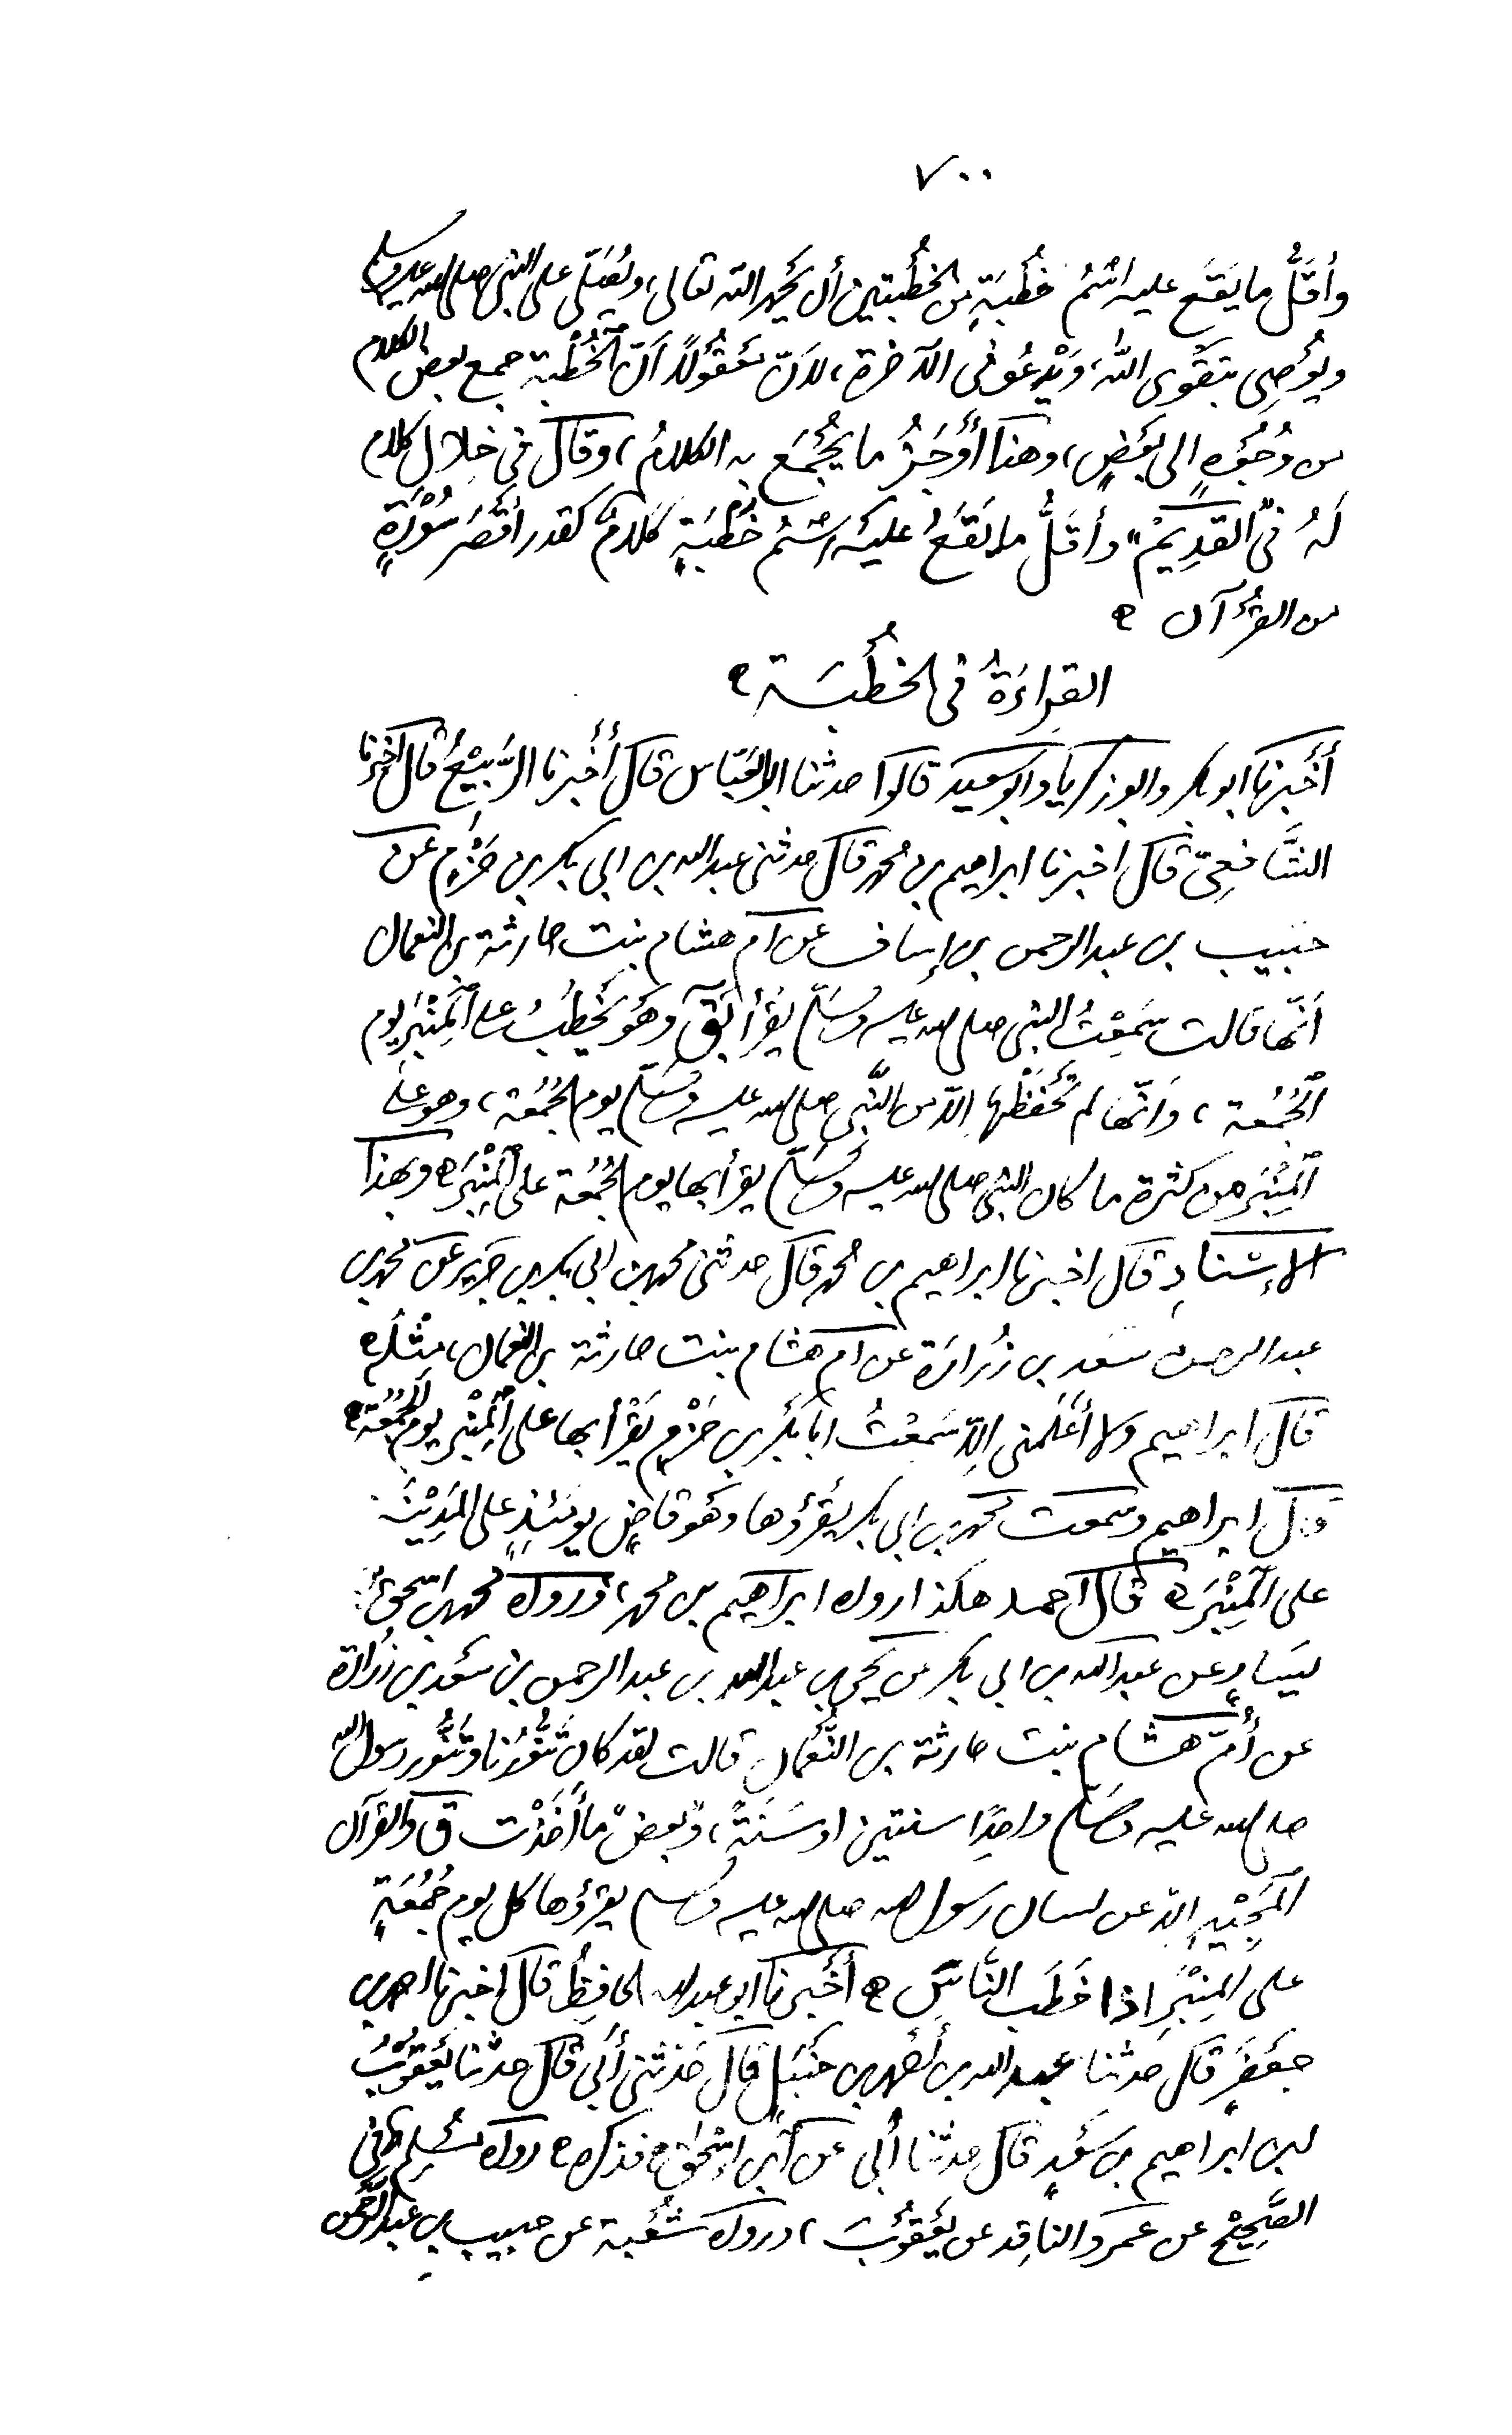 ٧٠٠
وأقلُّ ما يَقَع عليه اسْمُ خُطْبَةٍ من الخُطْبتين أن يحمد الله تعالى، ويُصَلّى على النبى صلى الله عليه وسلم
ويُوصِى بتقوى اللهُ، وَيَدْعُو فى الآخرة، لأنّ مَعْقُولًا أنّ الخُطْبَة جمع بعض الكلام
من وُجُوُهٍ إلى بَعْضٍ، وهذا أَوْجَزُ ما يُجْمَع به الكلامُ، وقال فى خِلال كلام
لَهُ فى القَدِيمْ" وأقلُّ ما يَقَعُ عليه اسْمُ خُطْبَةٍ كلامٌ كقدر أقْصَر سُوْرَةٍ
من القرْآن ه
القِراءَةُ فى الخُطْبَة ه
أخْبَرنا ابو بكر وابو زكريا وابو سعيد قالوا حدثنا ابو العَبّاس قال أخْبرنا الرَّبِيْعُ قال اخبرنا
الشَّافِعِىّ قال اخبرنا ابراهيم بن محمد قال حدثنى عبد الله بن ابى بكر بن حَزْمٍ عن
حبيب بن عبد الرحمن بن إساف عن أم هشام بنت حارثة بن النعمان
أنّها قالت سَمِعْتُ النبى صلى الله عليه وسَلّم يَقرأ بقٓ وهُو يَخْطُبُ على المِنْبَرِ يوم
الجُمُعة، وأنّها لم تَحْفَظْها إلّا من النَّبى صلى الله عليه وسَلّم يوم الجُمُعَة، وهو على
المِنْبَر من كثرة ما كان النبى صلى الله عليه وسَلّم يقرأ بها يوم الجُمُعَة على المِنْبَر ه وبهذا
الإسْنادِ قال اخبرنا ابراهيم بن محمد قال حدثنى محمد بن ابى بكر بن حَزْم عن محمد بن
عبد الرحمن بن سَعد بن زُرارَة عن أم هشام بنت حارثة بن النعمان، مِثْلَه ه
قال ابراهيم ولا أعْلَمنى إلّا سَمِعْتُ أبا بَكْر بن حَزْمٍ يَقْرأ بها على المِنْبَر يوم الجُمُعَة ه
قال ابراهيم وسمعت محمد بن ابى بكر يَقْرؤها وهُو قاضٍ يومَئذٍ على المَدِيْنَة
على المِنْبَر ه قال احمد هكذا رواه ابراهيم بن محمد، ورواه محمد بن اسحق بن
يَسَارٍ عن عبد الله بن ابى بكر عن يحيى بن عبد الله بن عبد الرحمن بن سَعْد بن زُرارة
عن أُمّ هشام بنت حارثة بن النُّعْمان قالت لقد كان تَنُّورُنا وتَنُّور رسول الله
صلى الله عليه وسلم واحِدًا سنتين او سَنَةً، وبعضَ ما أَخَذْت قٓ والقرآن
المَجِيْدِ إلّا عن لسان رسول الله صلى الله عليه وسلم يقرؤها كل يوم جُمُعَةٍ
على المِنْبَرِ اذا خَطَب النَّاسَ ه أخْبَرنا ابو عبد الله الحافِظُ قال اخبرنا احمد بن
جعفَرٍ قال حدثنا عبد الله بن أحْمد بن حَنْبَلٍ قال حَدّثنى أَبى قال حدثنا يَعْقُوْبُ
بن ابراهيم بن سَعْدٍ قال حدثنا أَبى عن ابن اسْحٰق، فذكره ه رواه مُسْلِم فى
الصَّحِيْح عن عَمرو الناقِد عن يَعْقُوْبَ، ورواه شُعْبة عن حبيب بن عبد الرَّحمن